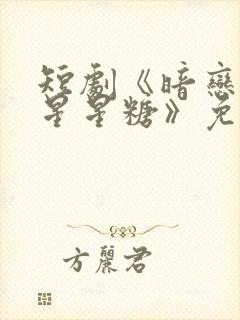 短劇《暗戀
星星糖》免
方麗君